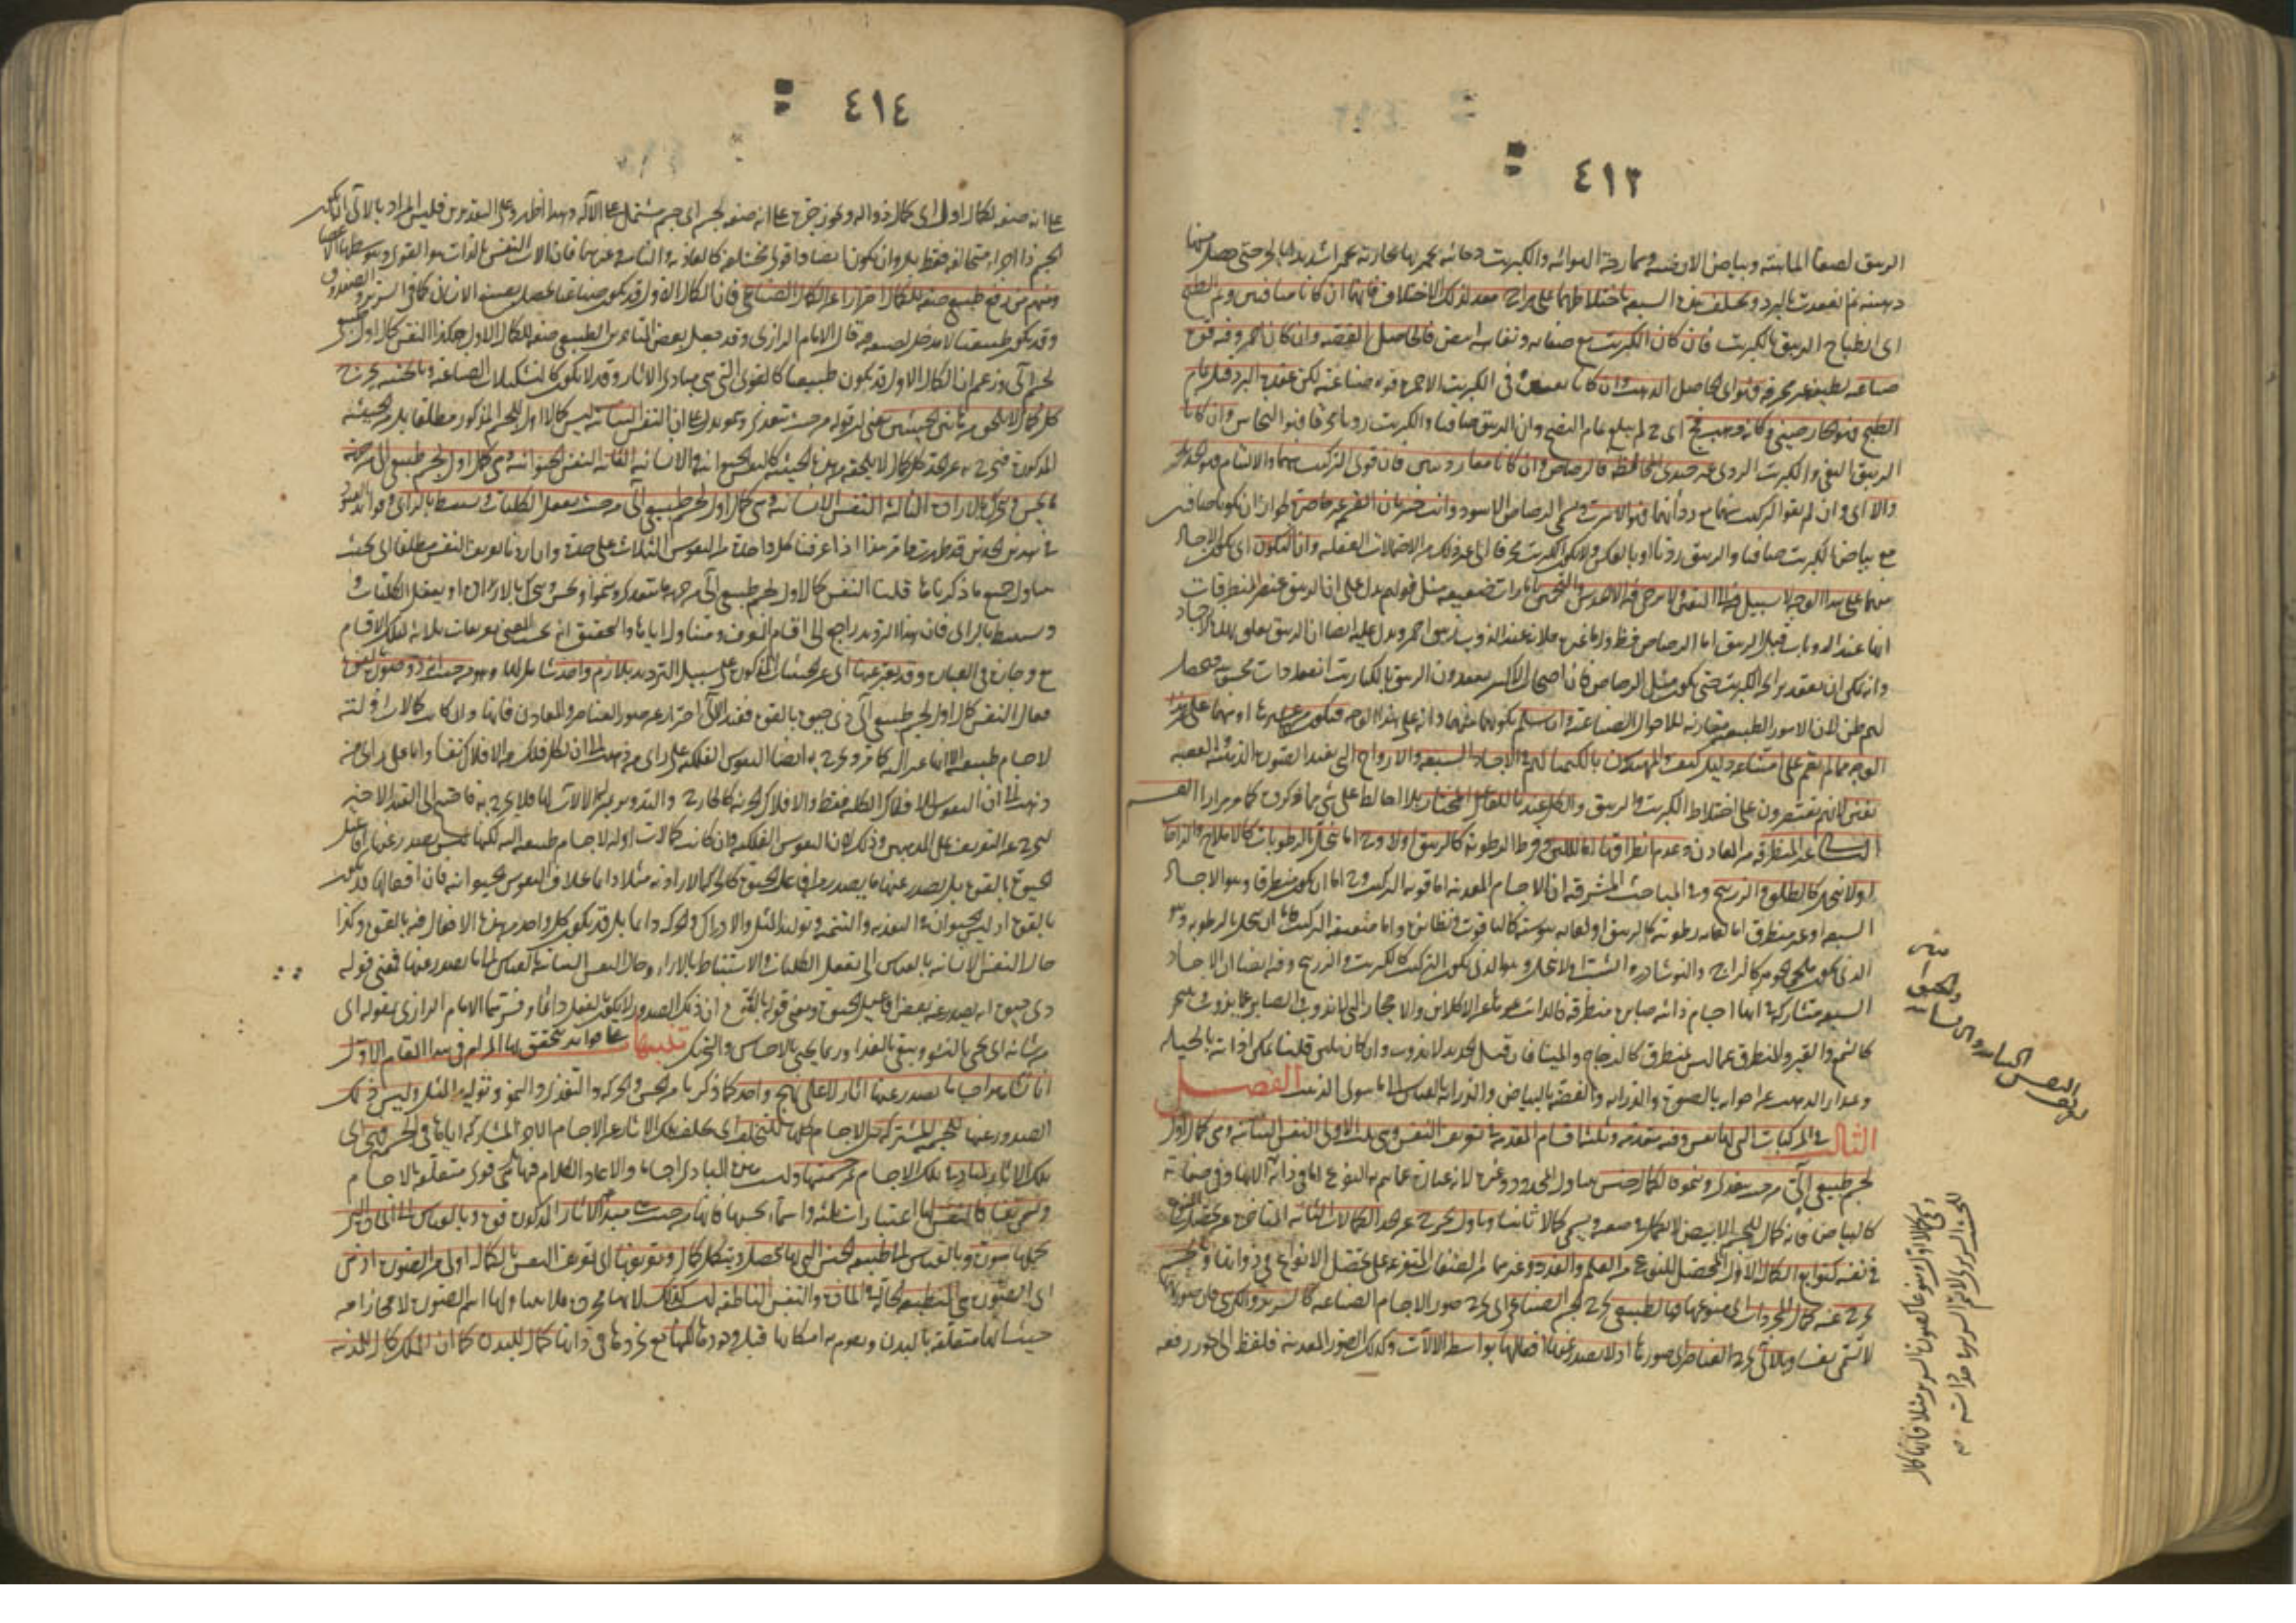 ٤١٣
الزيبق لصفاء المائية وبياض الارضية وممازجة الهوائية والكبريت دخانية تخمر بها بخارية تخمرا شديدا بالحر حتى حصل فيها
دهنية ثم انعقدت بالبرد وتختلف هذه السبعة باختلاطهما على مزاج معد لذلك الاختلاف فانهما ان كانا صافيين وتم الطبخ
اى انطباخ الزيبق بالكبريت فان كان الكبريت مع صفائه ونقائه ابيض فالحاصل الفضة وان كان احمر وفيه قوة
صباغة لطيفة غير محرقة فهو اى الحاصل الذهب وان كانا نقيين وفى الكبريت الاحمر قوة صباغة لكن عقده البرد قبل تمام
الطبخ فهو الخارصينى وكأنه ذهب فج اى لم يبلغ تمام النضج وان الزيبق صافيا والكبريت رديا محرقا فهو النحاس وان كانا
الزيبق النقى والكبريت الردى غير جيدى المخالطة فالرصاص وان كانا معا رديين فان قوى التركيب بينهما والالتئام فهو الحديد
والا اى وان لم يقو التركيب بينهما مع ردأتهما فهو الاسرب ويسمى الرصاص الاسود وانت خبير بان القسمة غير حاصرة لجواز ان يكونا صافيين
مع بياض الكبريت صافيا والزيبق رديا او بالعكس ولا يكون الكبريت محرقا الى غير ذلك من الاحتمالات العقلية وان التكون اى تكون الاجساد
منهما على هذا الوجه لا سبيل فيه الى اليقين ولا يرجى فيه الا الحدس والتخمين بامارات ضعيفة مثل قولهم يدل على ان الزيبق عنصر المنطرقات
انها عند الذوبان مثل الزيبق اما الرصاص فظ واما غيره فلانه عند الذوب زيبق احمر ويدل عليه ايضا ان الزيبق يعلق بهذه الاجساد
وانه يمكن ان يعقد برائحة الكبريت حتى يكون مثل الرصاص فان اصحاب الاكسير يعقدون الزيبق بالكباريت انعقادات محسوسة فيحصل
لهم ظن الان الامور الطبيعية مقارنة للاحوال الصناعية وان سلم تكونها منهما وانه على هذا الوجه فتكونها من غيرهما او منهما على غير هذا
الوجه مما لم يقم على امتناعه دليل كيف والمهوسون بالكيميا لهم فى الاجساد السبعة والارواح التى يفيد الصورة الذهبية والفضية
تفنن لانهم يقتصرون على اختلاط الكبريت والزيبق والكل عندنا للفاعل المختار بلا احالة على شئ مما ذكروه كما مر مرارا القسم
الثانى غير المنطرقة من المعادن وعدم انطراقها اما للين وفرط الرطوبة كالزيبق اولا وح اما تنحل بالرطوبات كالاملاح والزاجات
اولا تنحل كالطلق والزرنيخ وفى المباحث المشرقية ان الاجسام المعدنية اما قوية التركيب وح اما ان يكون منطرقا وهو الاجساد
السبعة او غير منطرق اما لغاية رطوبته كالزيبق او لغاية يبوسته كالياقوت ونظائره واما ضعيفة التركيب فاما ان ينحل بالرطوبة وهو
الذى يكون ملحى الجوهر كالزاج والنوشادر والشب او لا ينحل وهو الذى يكون التركيب كالكبريت والزرنيخ وفيه ايضا ان الاجساد
السبعة متشاركة فى انها اجسام ذائبة صابرة منطرقة فالذائب تميزها عن الاكلاس والاحجار التى لا تذوب والصابر عما يذوب ويتبخر
كالشمع والقير والمنطرق عما ليس بمنطرق كالزجاج والمينا فان قيل الحديد لا يذوب وان كان يلين قلنا يمكن اذابته بالحيلة
ويمتاز الذهب عن اخواته بالصفرة والرزانة والفضة بالبياض والرزانة بالقياس الى ما سوى الذهب الفصل
الثالث فى المركبات التى لها نفس وفيه مقدمة وثلثة اقسام المقدمة فى تعريف النفس وهى ثلث الاولى النفس النباتية وهى كمال اول
لجسم طبيعى آلى من حيث يتغذى وينمو فالكمال جنس يتناول المحدود وغيره لانه عبارة عما يتم به النوع اما فى ذاته او فى صفاته
كالبياض فانه كمال للجسم الابيض لا يكمل فى صفته ويسمى كمالا ثانيا وباول يخرج عن الحد الكمالات الثانية المتأخرة عن تحصل النوع
فى نفسه كتوابع الكمال الاول المحصل للنوع من العلم والقدرة وغيرهما من الصفات المتفرعة على تحصل الانواع فى ذواتها ولجسم
يخرج عنه كمال المجردات اى منوعها وبالطبيعى يخرج الجسم الصناعى اى يخرج صور الاجسام الصناعية كالسرير والكرسى فان صورها
لا تسمى نفسا وبالآلى يخرج العناصر اى صورها اذ لا يصدر عنها افعالها بواسطة الآلات وكذلك الصور المعدنية فلفظ آلى يجوز رفعه
تعريف النفس النباتية والحيوانية والانسانية
٤١٤
على انه صفة لكمال اول اى كمال ذو آلة ويجوز جره على انه صفة لجسم اى جسم مشتمل على الآلة وهذا اظهر وعلى التقديرين فليس المراد بالآلى ان يكون
الجسم ذا اجزاء متخالفة فقط بل وان يكون ايضا ذا قوى مختلفة كالغاذية والنامية وغيرهما فان آلات النفس بالذات هو القوى وبتوسطها الاعضاء
ومنهم من رفع طبيعى صفة للكمال احترازا عن الكمال الصناعى فان الكمال الاول قد يكون صناعيا يحصل بصنع الانسان كما فى السرير والصندوق
وقد يكون طبيعيا لا مدخل لصنعه فيه قال الامام الرازى وقد جعل بعض المتأخرين الطبيعى صفة للكمال الاول هكذا النفس كمال اول طبيعى
لجسم آلى وزعم ان الكمال الاول قد يكون طبيعيا كالقوى التى هى مبادى الآثار وقد لا يكون كالتشكيلات الصناعية وبالحيثية يخرج
كل كمال لا يلحق من هاتين الحيثيتين يعنى ان قوله من حيث يتغذى وينمو يدل على ان النفس النباتية ليس كمالا اول للجسم المذكور مطلقا بل من الحيثية
المذكورة فيخرج به عن الحد كل كمال لا يلحقه من هذه الحيثية كالنفس الحيوانية والانسانية الثانية النفس الحيوانية وهى كمال اول لجسم طبيعى آلى من جهة
ما يحس ويتحرك بالارادة الثالثة النفس الانسانية وهى كمال اول لجسم طبيعى آلى من حيث يعقل الكليات ويستنبط بالراى وفوائد القيود
فى هذين الحدين قد ظهرت مما مر هذا اذا عرفنا كل واحدة من النفوس الثلاث على حدة واذا اردنا تعريف النفس مطلقا اى بحيث
يتناول جميع ما ذكرناها قلنا النفس كمال اول لجسم طبيعى آلى من جهة ما يتغذى وينمو او يحس ويتحرك بالارادة او يعقل الكليات و
يستنبط بالراى فان هذا الترديد راجع الى اقسام المعرف ومتناول اياها والتحقيق انه بحسب المعنى تعريفات ثلاثة لتلك الاقسام
مع وجازة فى العبارة وقد يعبر عنها اى عن الحيثيات المذكورة على سبيل الترديد بلازم واحد شامل لها وهو من حيث انه ذو حيوة بالقوة
فيقال النفس كمال اول لجسم طبيعى آلى ذى حيوة بالقوة فقيد الآلى احتراز عن صور العناصر والمعادن فانها وان كانت كمالات اولية
لاجسام طبيعية الا انها غير آلية كما مر ويخرج به ايضا النفوس الفلكية على راى من ذهب الى ان لكل فلك من الافلاك نفسا واما على راى من
ذهب الى ان النفوس للافلاك الكلية فقط والافلاك الجزئية كالخارج والتدوير بمنزلة الآلات لها فلا يخرج به فاحتيج الى القيد الاخير
ليخرج عن التعريف على المذهبين وذلك لان النفوس الفلكية وان كانت كمالات اولية لاجسام طبيعية آلية لكنها ليس يصدر عنها افاعيل
الحيوة بالقوة بل يصدر عنها ما يصدر من افاعيل الحيوة كالحركة الارادية مثلا دائما بخلاف النفوس الحيوانية فان افعالها قد يكون
بالقوة اذ ليس الحيوان فى التغذية والتنمية وتوليد المثل والادراك والحركة دائما بل قد يكون كل واحد من هذه الافعال فيه بالقوة وكذا
حال النفس الانسانية بالقياس الى تعقل الكليات والاستنباط بالاراء وحال النفس النباتية بالقياس الى ما يصدر عنها فمعنى قوله
ذى حيوة انه يصدر عنه بعض افاعيل الحيوة ومعنى قوله بالقوة ان ذلك الصدور لا يكون بالفعل دائما وفسرهما الامام الرازى بقوله اى
من شانه ان يحيى بالنشو ويبقى بالغذاء وربما يحيى بالاحساس والتحريك تنبيهات على فوائد تتحقق بها المرام فى هذا المقام الاول
انا نشاهد اجساما يصدر عنها آثار لا على نهج واحد كما ذكرنا من الحس والحركة والتغذى والنمو وتوليد المثل وليس ذلك
الصدور عنها للجسمية المشتركة بين الاجسام كلها للتخلف اى تخلف تلك الآثار عن الاجسام الاخر المشاركة اياها فى الجسمية فهى اى
تلك الآثار لمبادى فى تلك الاجسام غير جسميتها وليست هذه المبادى اجساما والا عاد الكلام فيها بل هى قوى متعلقة بالاجسام
وتسمى نفسا فالنفس لها اعتبارات ثلثة واسماء بحسبها فانها من حيث هى مبدأ الآثار المذكورة قوة وبالقياس الى المادة التى
تحلها صورة وبالقياس الى طبيعة الجنس التى بها يتحصل ويتكمل كمال وتعريفها اى تعريف النفس بالكمال اولى من الصورة اذ هى
اى الصورة هى المنطبعة الحالة فى المادة والنفس الناطقة ليست كذلك لانها مجردة فلا يتناولها اسم الصورة الا مجازا من
حيث انها متعلقة بالبدن ويقوم به امكانها قبل وجودها لكنها مع تجردها فى ذاتها كمال للبدن كما ان الملك كمال للمدينة